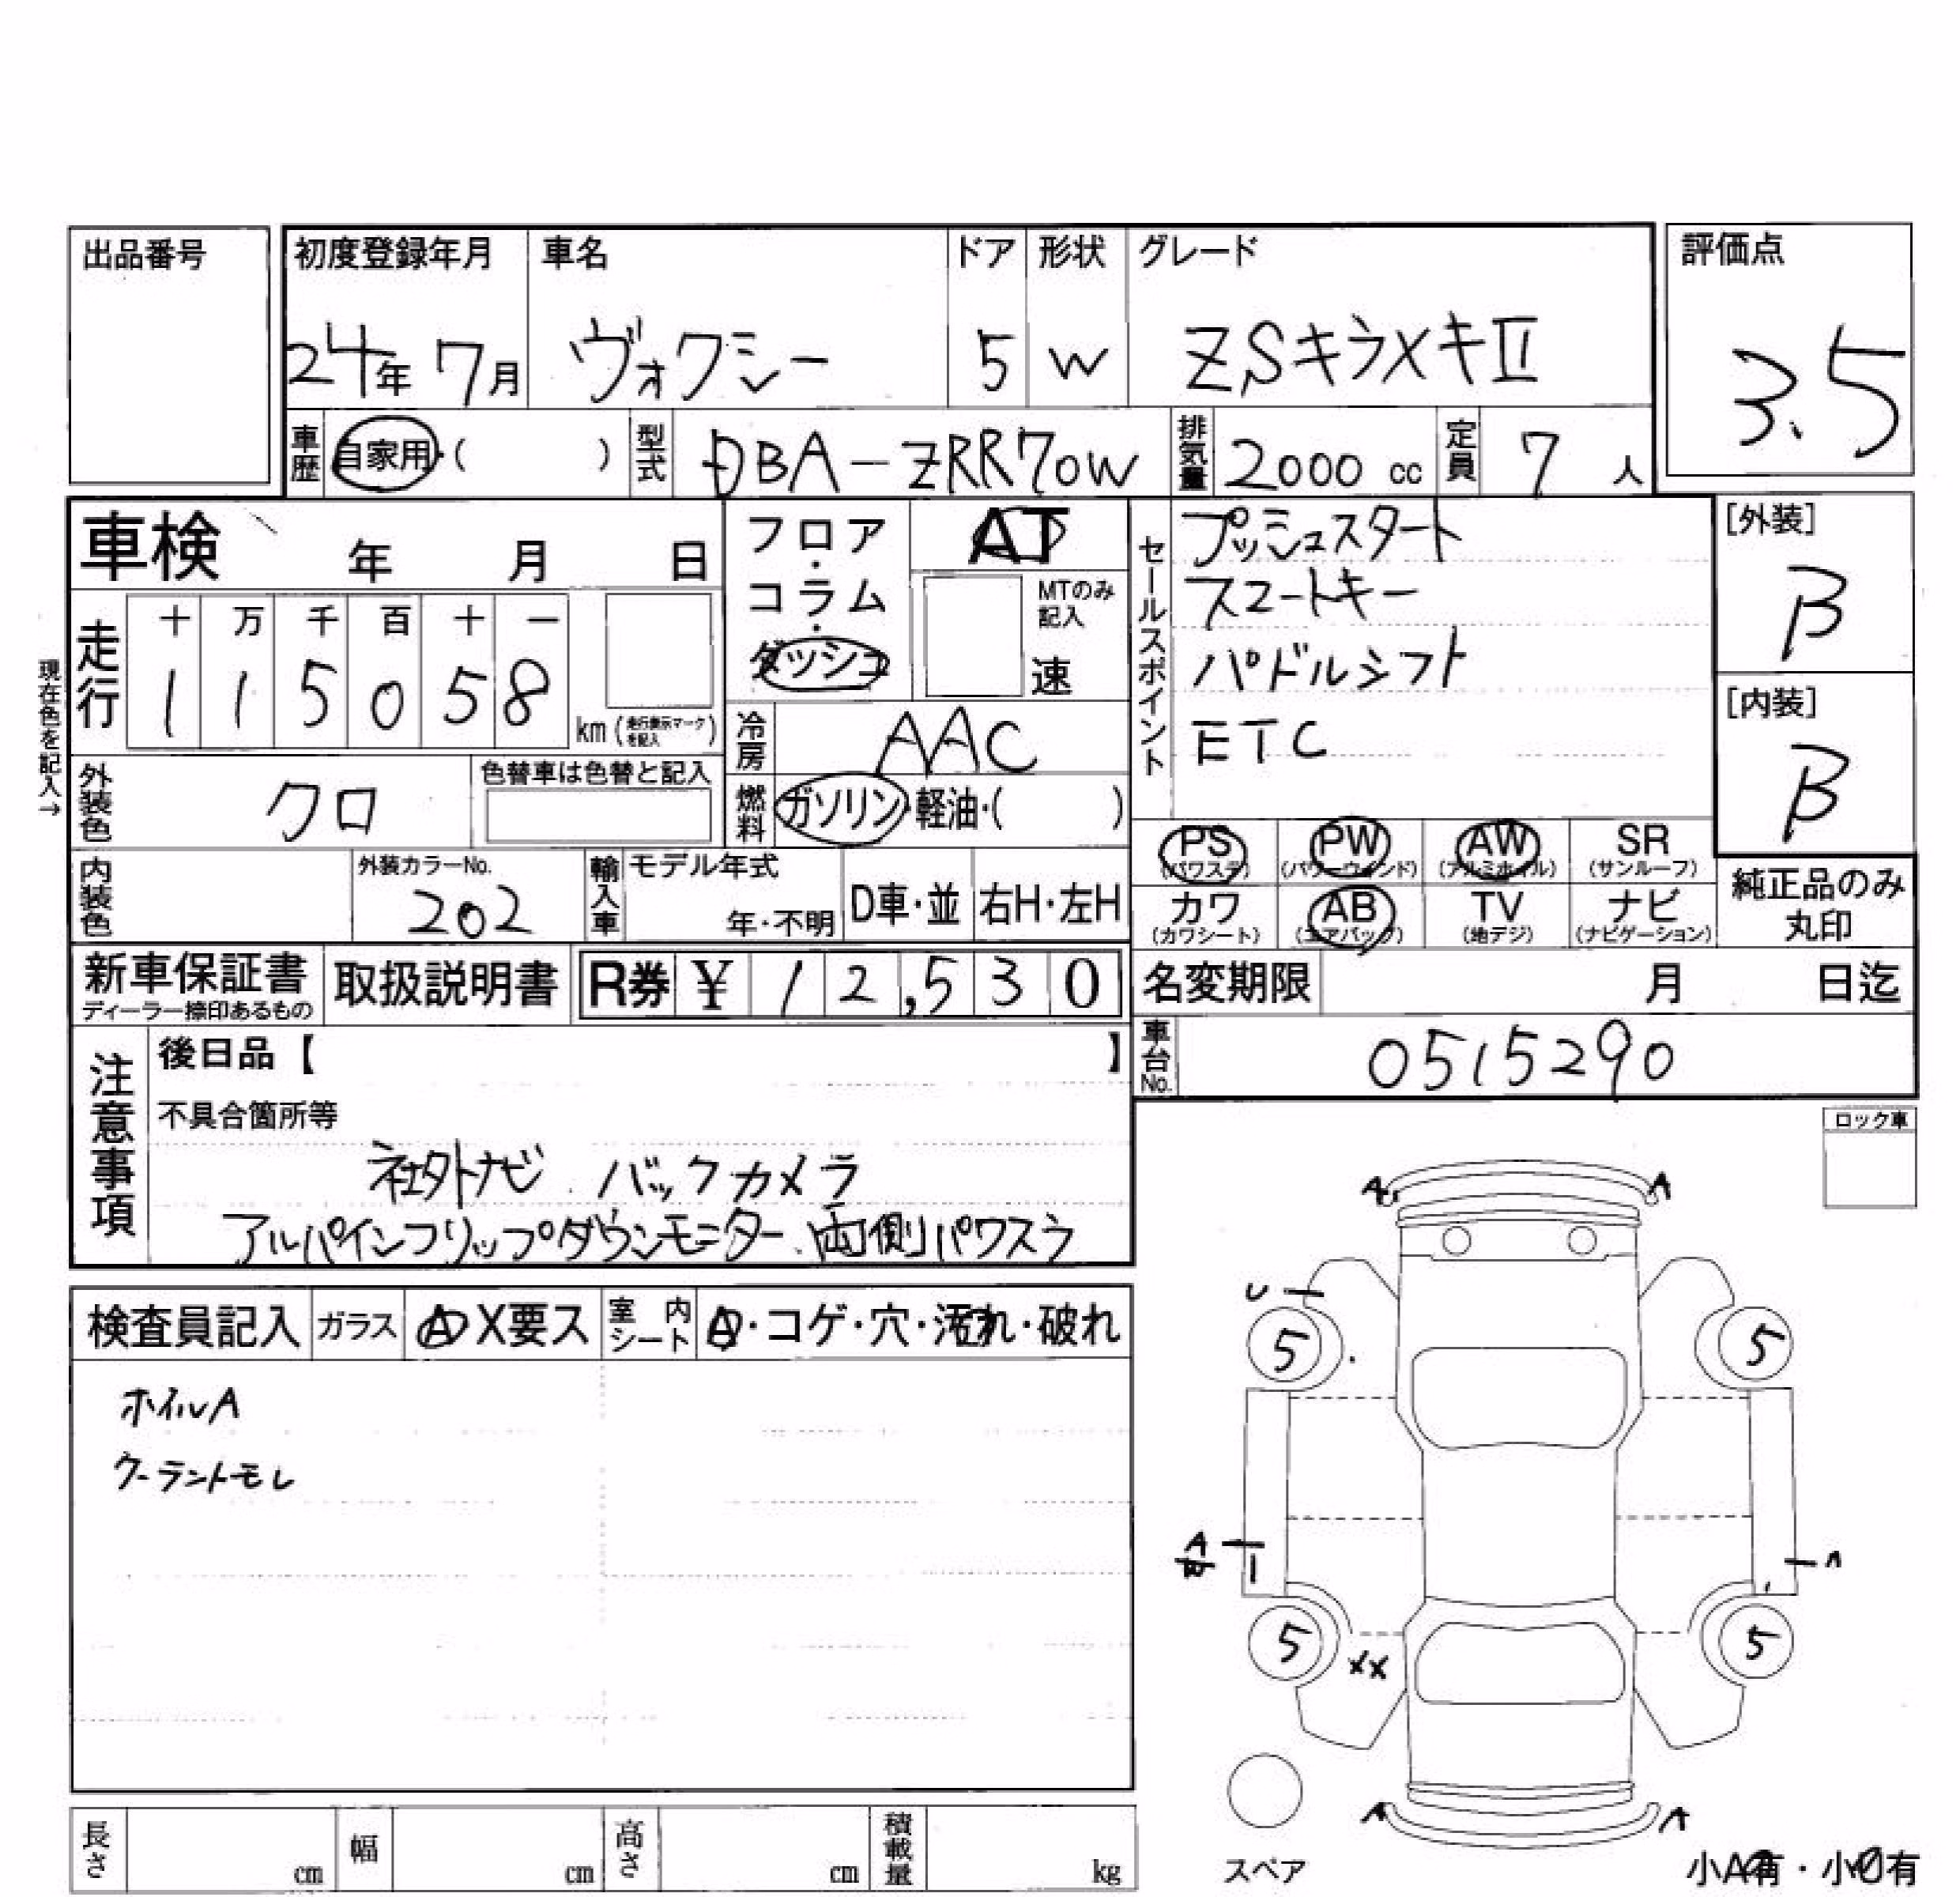 出品番号
初度登録年月 車名 ドア 形状 グレード 評価点
24年 7月 ヴォクシー 5 W ZSキラメキⅡ 3.5
車歴 自家用・( ) 型式 DBA-ZRR70W 排気量 2000 cc 定員 7 人
車検 年 月 日
フロア・コラム・ダッシュ
AT
MTのみ記入
速
セールスポイント
プッシュスタート
スマートキー
パドルシフト
ETC
[外装]
B
[内装]
B
現在色を記入→
走行 十 万 千 百 十 一
1 1 5 0 5 8 km (走行表示マークを記入)
冷房 AAC
外装色 クロ 色替車は色替と記入
燃料 ガソリン・軽油・( )
PS PW AW SR
(パワステ) (パワーウインド) (アルミホイル) (サンルーフ)
カワ AB TV ナビ
(カワシート) (エアバッグ) (地デジ) (ナビゲーション)
純正品のみ
丸印
内装色 外装カラーNo. 202 輸入車 モデル年式 年・不明 D車・並 右H・左H
新車保証書 取扱説明書 R券 ¥ 12,530 名変期限 月 日迄
ディーラー捺印あるもの
車台No. 0515290
注意事項
後日品【 】
不具合箇所等
社外ナビ バックカメラ
アルパインフリップダウンモニター、両側パワスラ
ロック車
検査員記入 ガラス A X要ス 室内シート A・コゲ・穴・汚れ・破れ
ホイルA
クーラントモレ
A A
U
5 5
A
W
A
5 XX 5
A A
スペア
小A有・小U有
長さ cm 幅 cm 高さ cm 積載量 kg